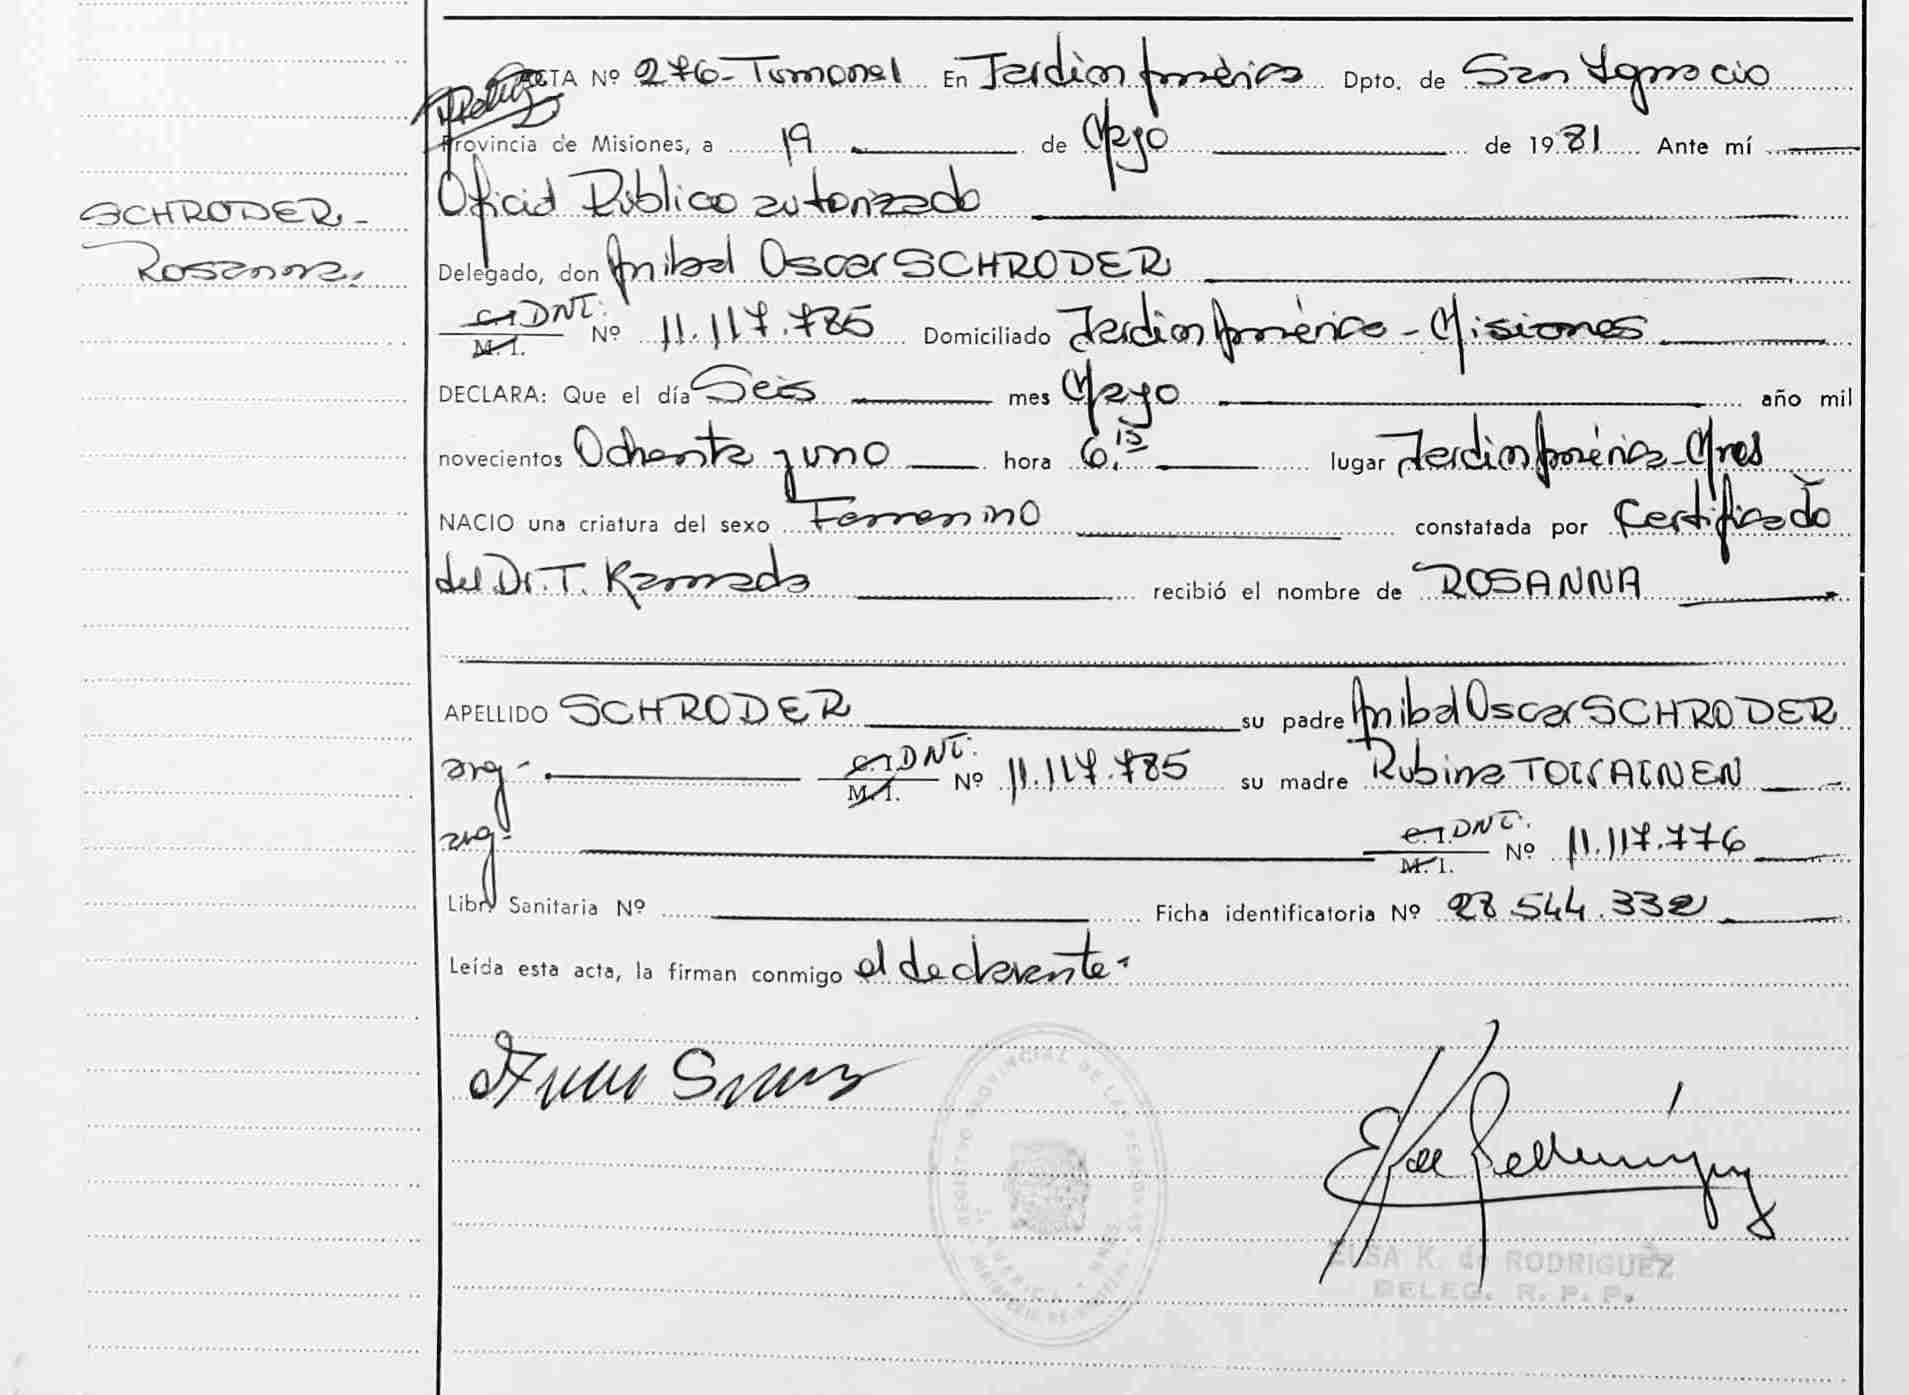 ACTA Nº 276- Tomo nel En Jardin América Dpto. de San Ignacio
Provincia de Misiones, a 19 de Mayo de 1981 Ante mí
Oficial Publico autorizado
SCHRODER-
Rosanna.
Delegado, don Anibal Oscar SCHRODER
C.I. DNI. M.I. Nº 11.117.785 Domiciliado Jardin América - Misiones
DECLARA: Que el día Seis mes Mayo año mil
novecientos Ochenta y uno hora 6.15 lugar Jardin América-Mnes
NACIO una criatura del sexo Femenino constatada por Certificado
del Dr. T. Kamada recibió el nombre de ROSANNA
APELLIDO SCHRODER su padre Anibal Oscar SCHRODER
arg- C.I. DNI. M.I. Nº 11.117.785 su madre Rubina TOIVAINEN
arg- C.I. DNI. M.I. Nº 11.117.776
Libr. Sanitaria Nº Ficha identificatoria Nº 28.544.332
Leída esta acta, la firman conmigo el declarante-
REGISTRO PROVINCIAL DE LAS PERSONAS
ELSA K. de RODRIGUEZ
DELEG. R. P. P.